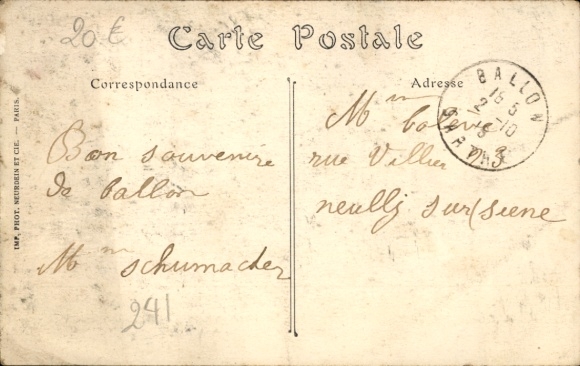 20 €
Carte Postale
Correspondance
Adresse
BALLON
16 5
2 -10
SARTHE
IMP. PHOT. NEURDEIN ET CIE. — PARIS.
Bon souvenire
de ballon
Mm schumacher
241
Mm
rue Villier n 3
neully sur seene